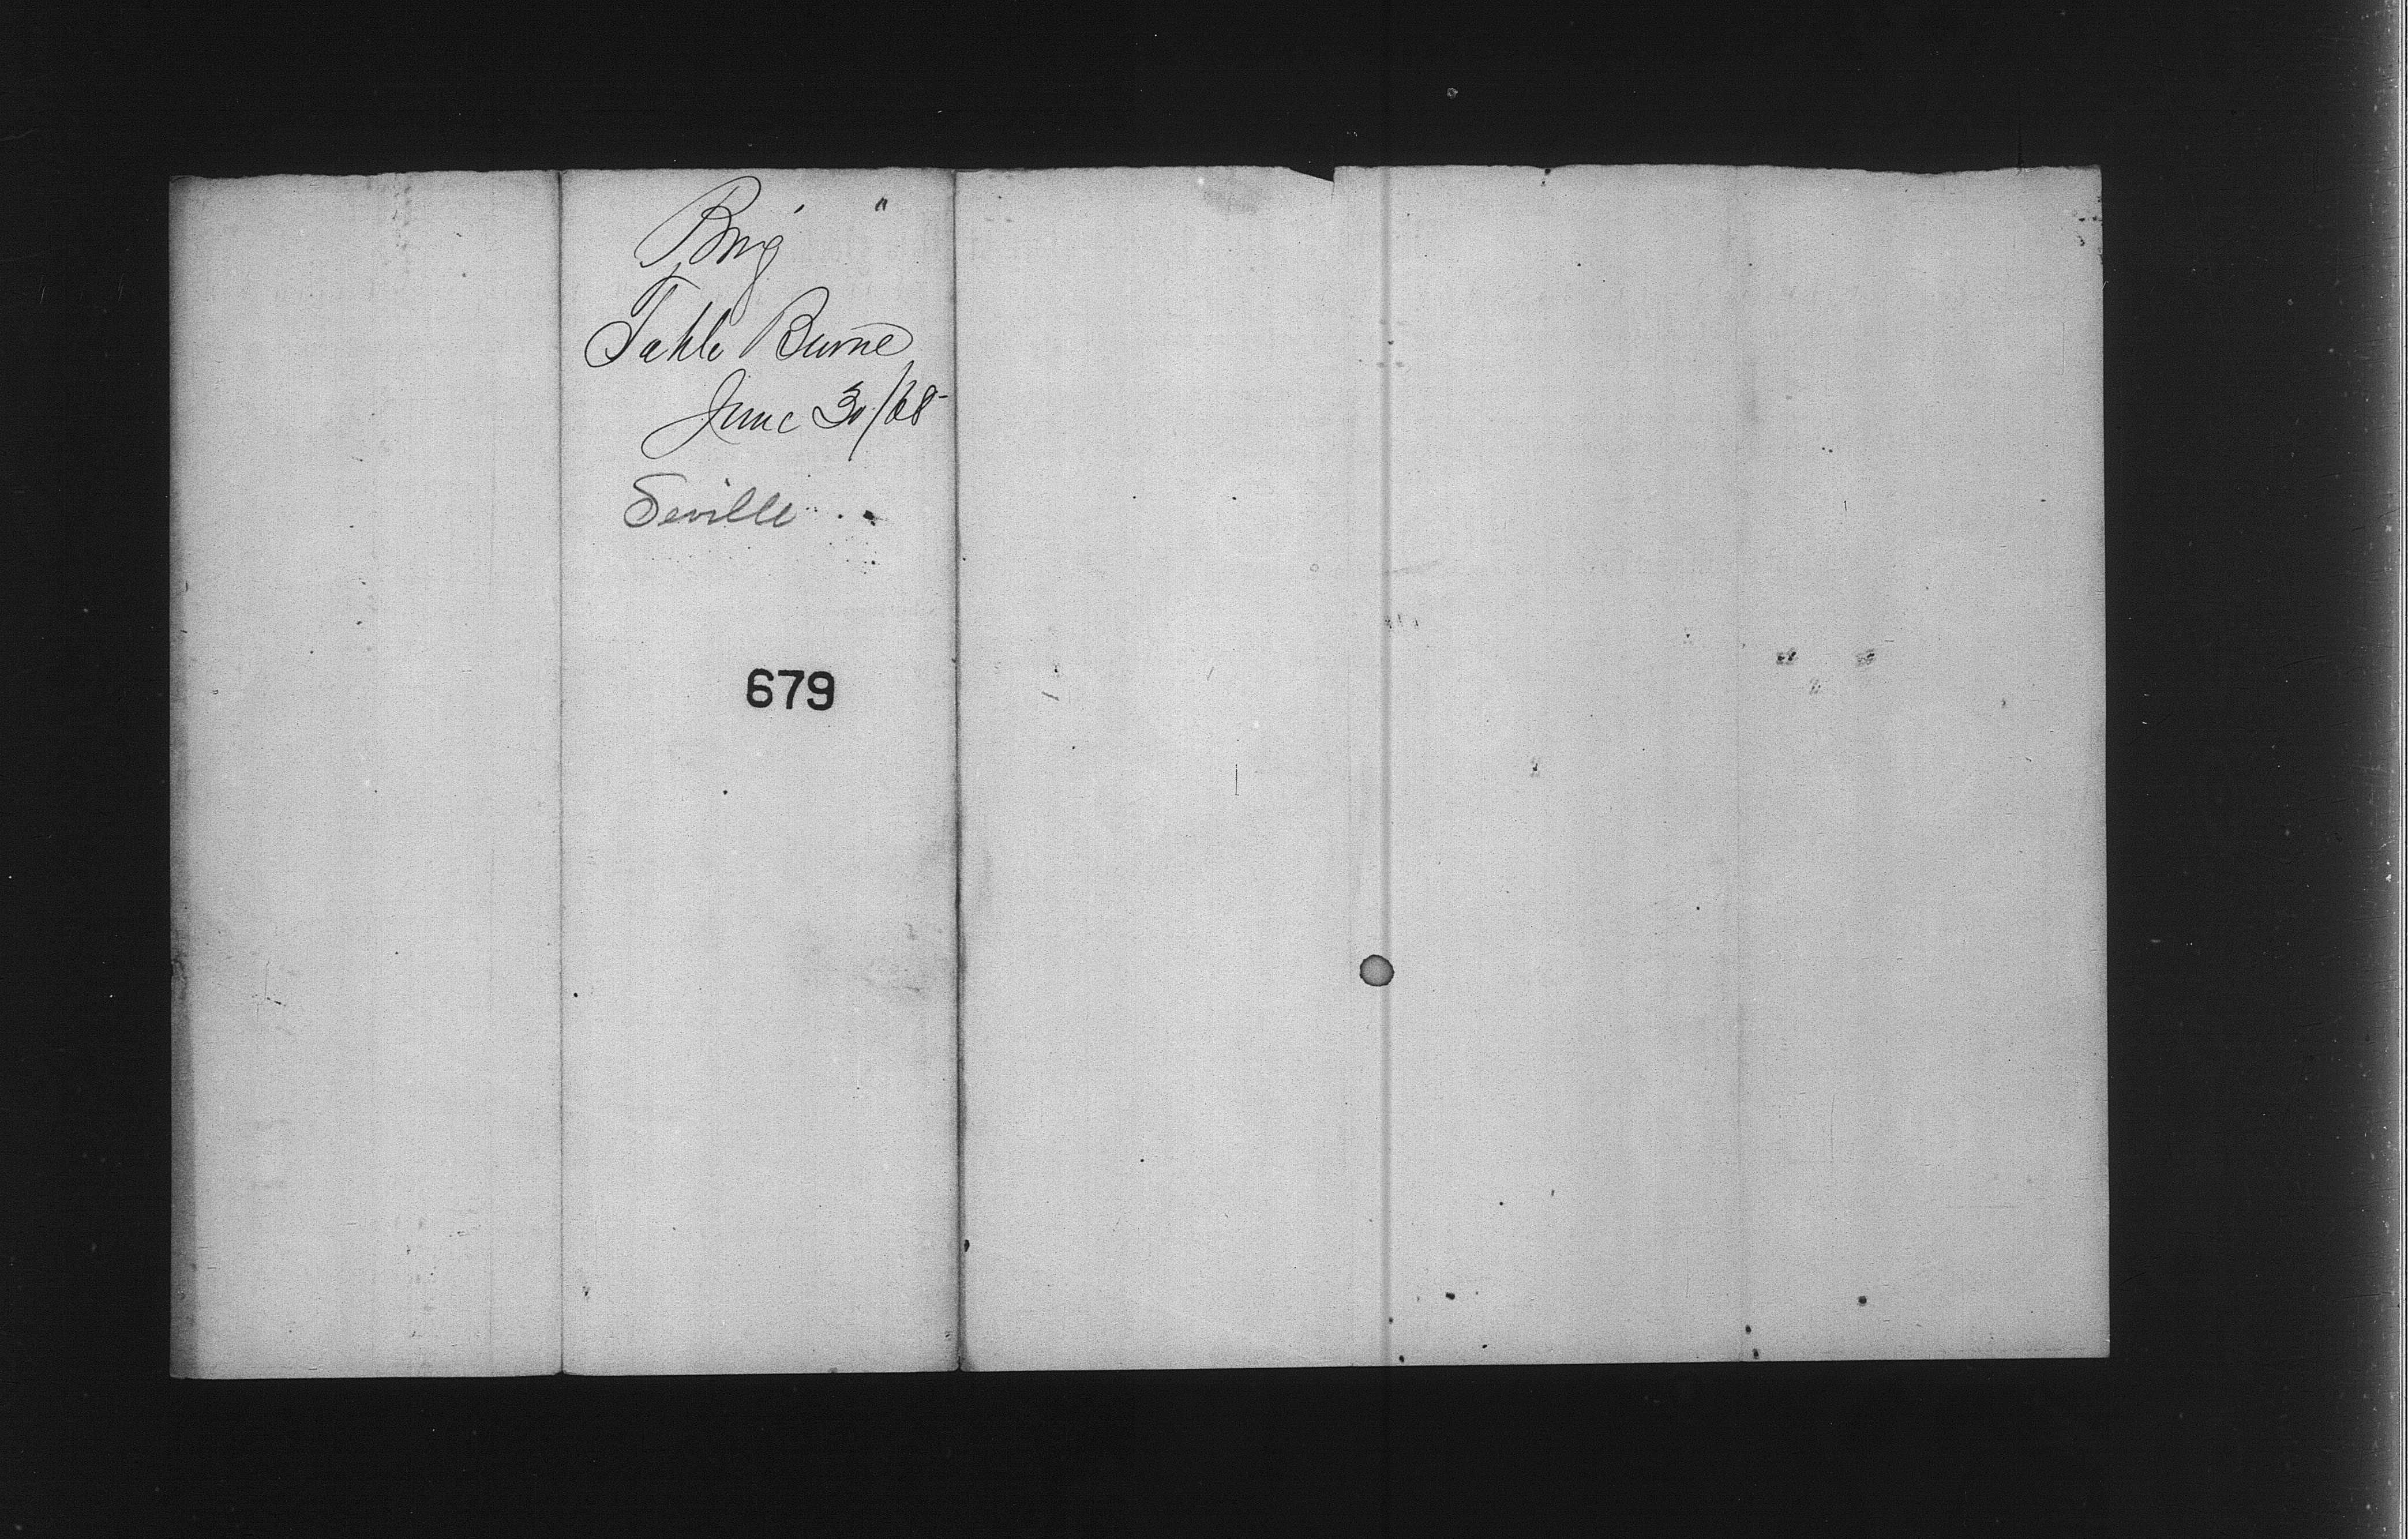 Brig "
Tahle Burne
June 30/68
Seville
679